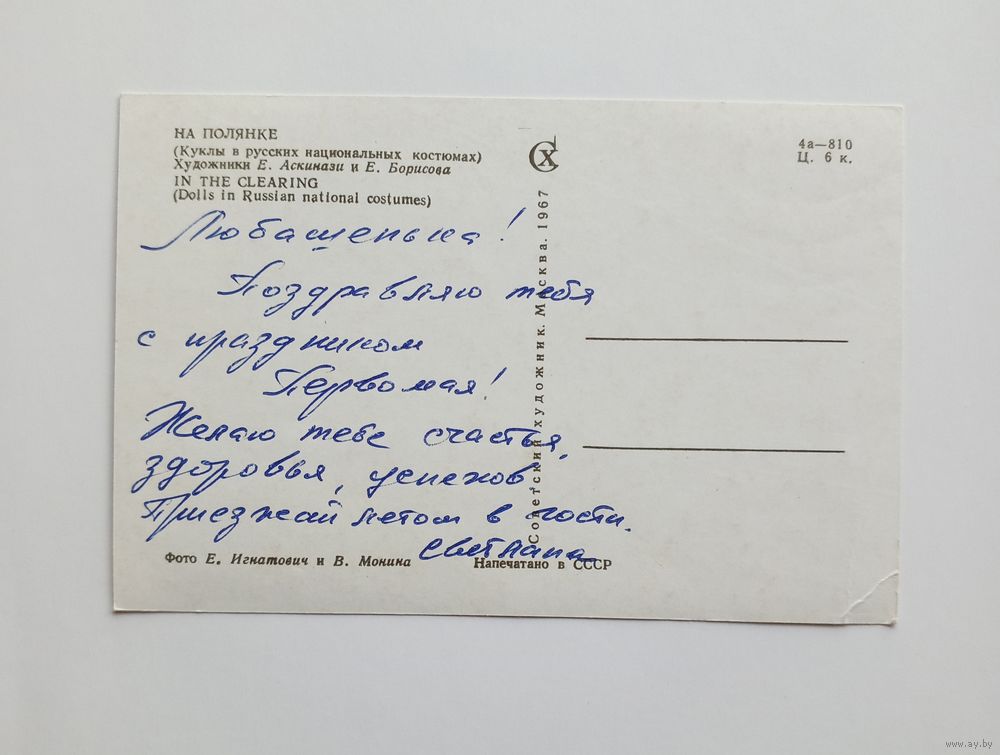 НА ПОЛЯНКЕ
(Куклы в русских национальных костюмах)
Художники Е. Аскинази и Е. Борисова
IN THE CLEARING
(Dolls in Russian national costumes)
Любашенька!
Поздравляю тебя
с праздником
Первомая!
Желаю тебе счастья,
здоровья, успехов.
Приезжай летом в гости.
Светлана
Фото Е. Игнатович и В. Монина
Напечатано в СССР
Советский художник. Москва. 1967
СХ
4а—810
Ц. 6 к.
www.ay.by